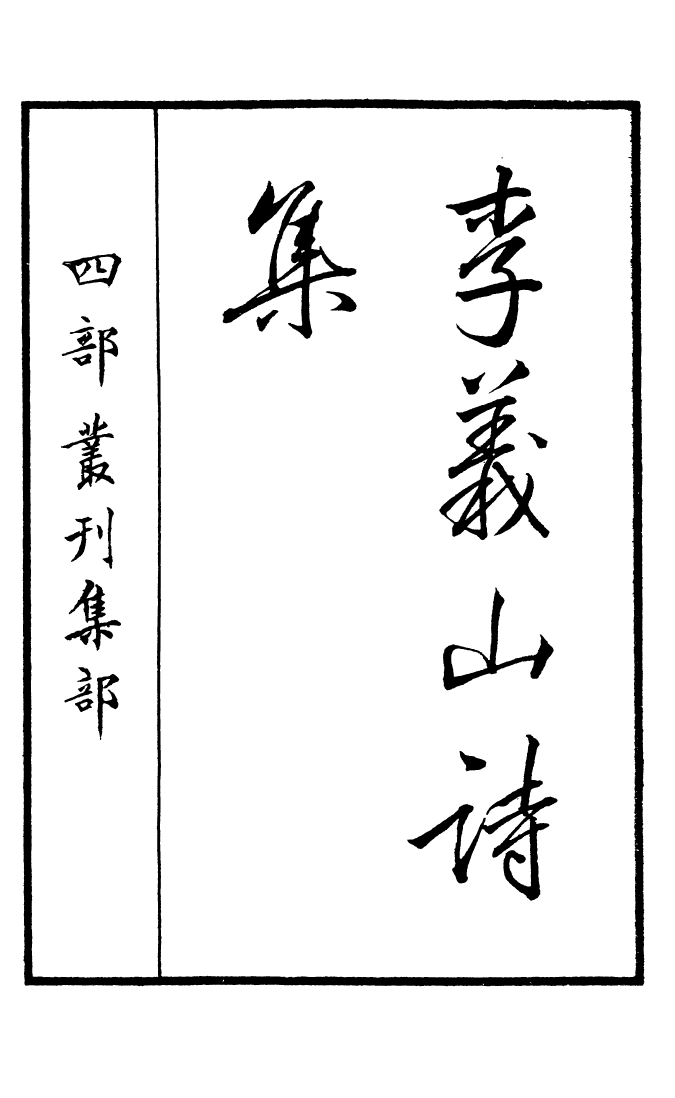 李義山詩
集
四部叢刊集部